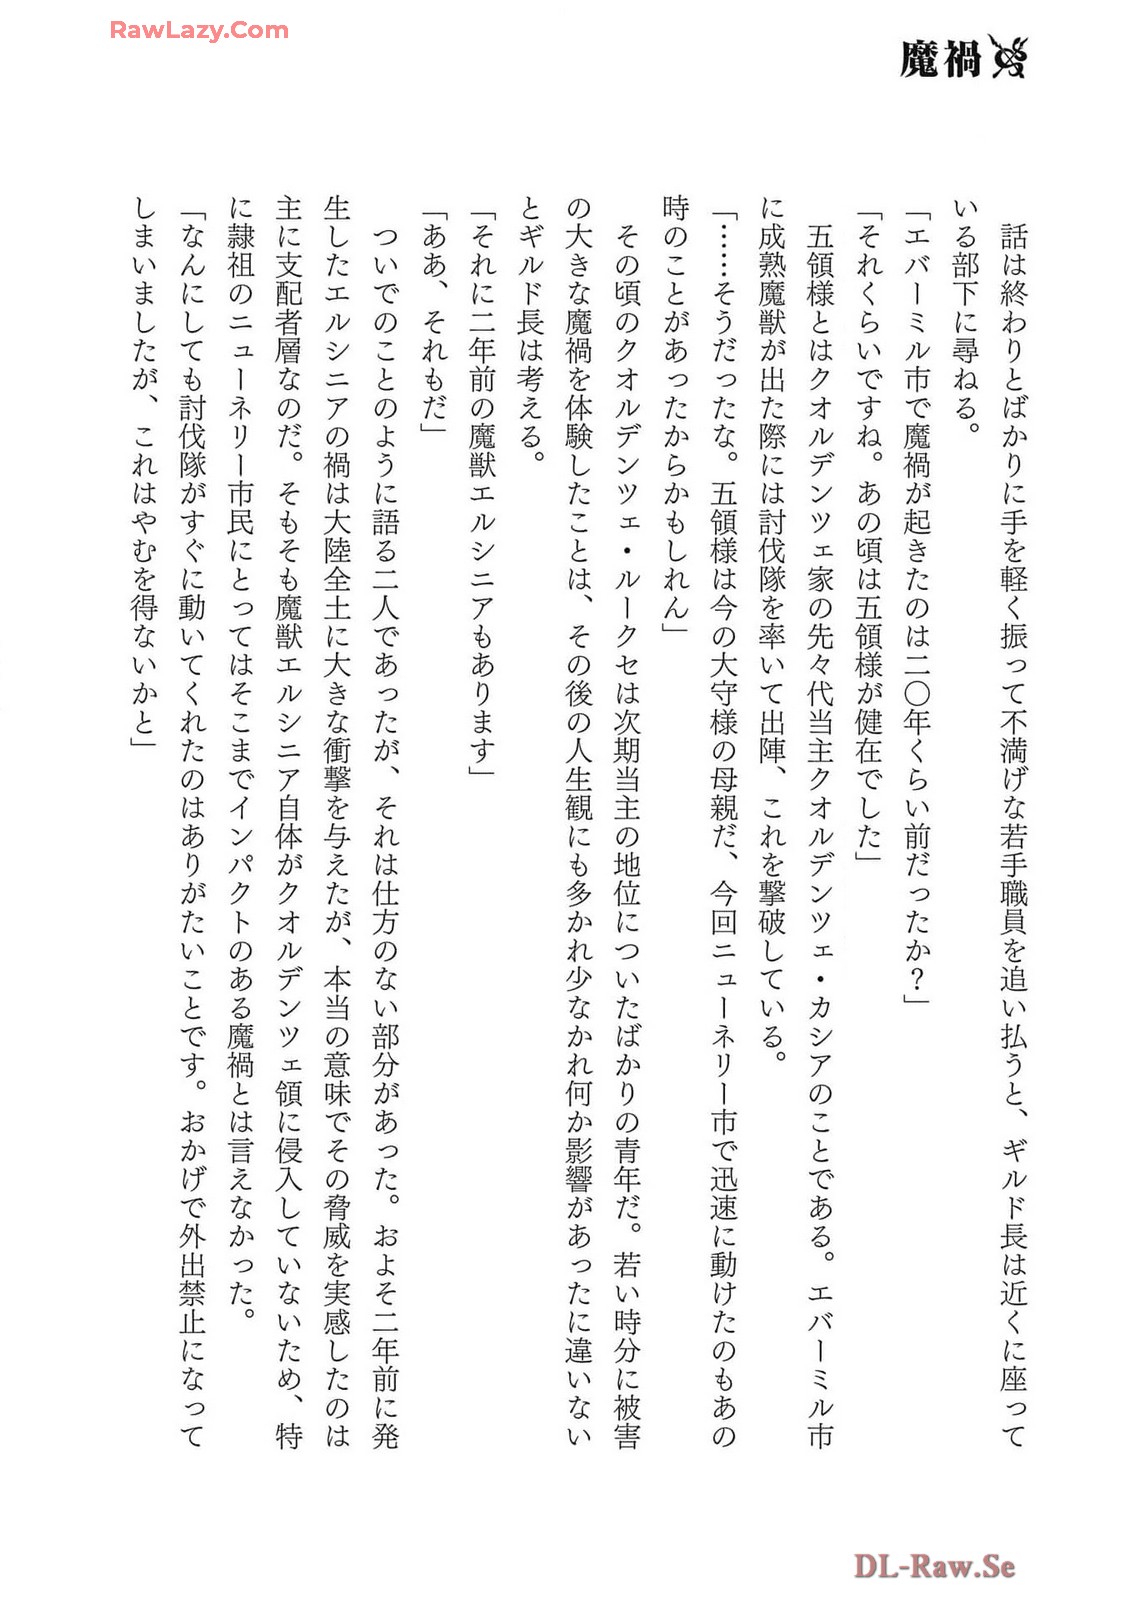 RawLazy.Com
魔禍
　話は終わりとばかりに手を軽く振って不満げな若手職員を追い払うと、ギルド長は近くに座って
いる部下に尋ねる。
「エバーミル市で魔禍が起きたのは二〇年くらい前だったか？」
「それくらいですね。あの頃は五領様が健在でした」
　五領様とはクオルデンツェ家の先々代当主クオルデンツェ・カシアのことである。エバーミル市
に成熟魔獣が出た際には討伐隊を率いて出陣、これを撃破している。
「……そうだったな。五領様は今の大守様の母親だ、今回ニューネリー市で迅速に動けたのもあの
時のことがあったからかもしれん」
　その頃のクオルデンツェ・ルークセは次期当主の地位についたばかりの青年だ。若い時分に被害
の大きな魔禍を体験したことは、その後の人生観にも多かれ少なかれ何か影響があったに違いない
とギルド長は考える。
「それに二年前の魔獣エルシニアもあります」
「ああ、それもだ」
　ついでのことのように語る二人であったが、それは仕方のない部分があった。およそ二年前に発
生したエルシニアの禍は大陸全土に大きな衝撃を与えたが、本当の意味でその脅威を実感したのは
主に支配者層なのだ。そもそも魔獣エルシニア自体がクオルデンツェ領に侵入していないため、特
に隷祖のニューネリー市民にとってはそこまでインパクトのある魔禍とは言えなかった。
「なんにしても討伐隊がすぐに動いてくれたのはありがたいことです。おかげで外出禁止になって
しまいましたが、これはやむを得ないかと」
DL-Raw.Se